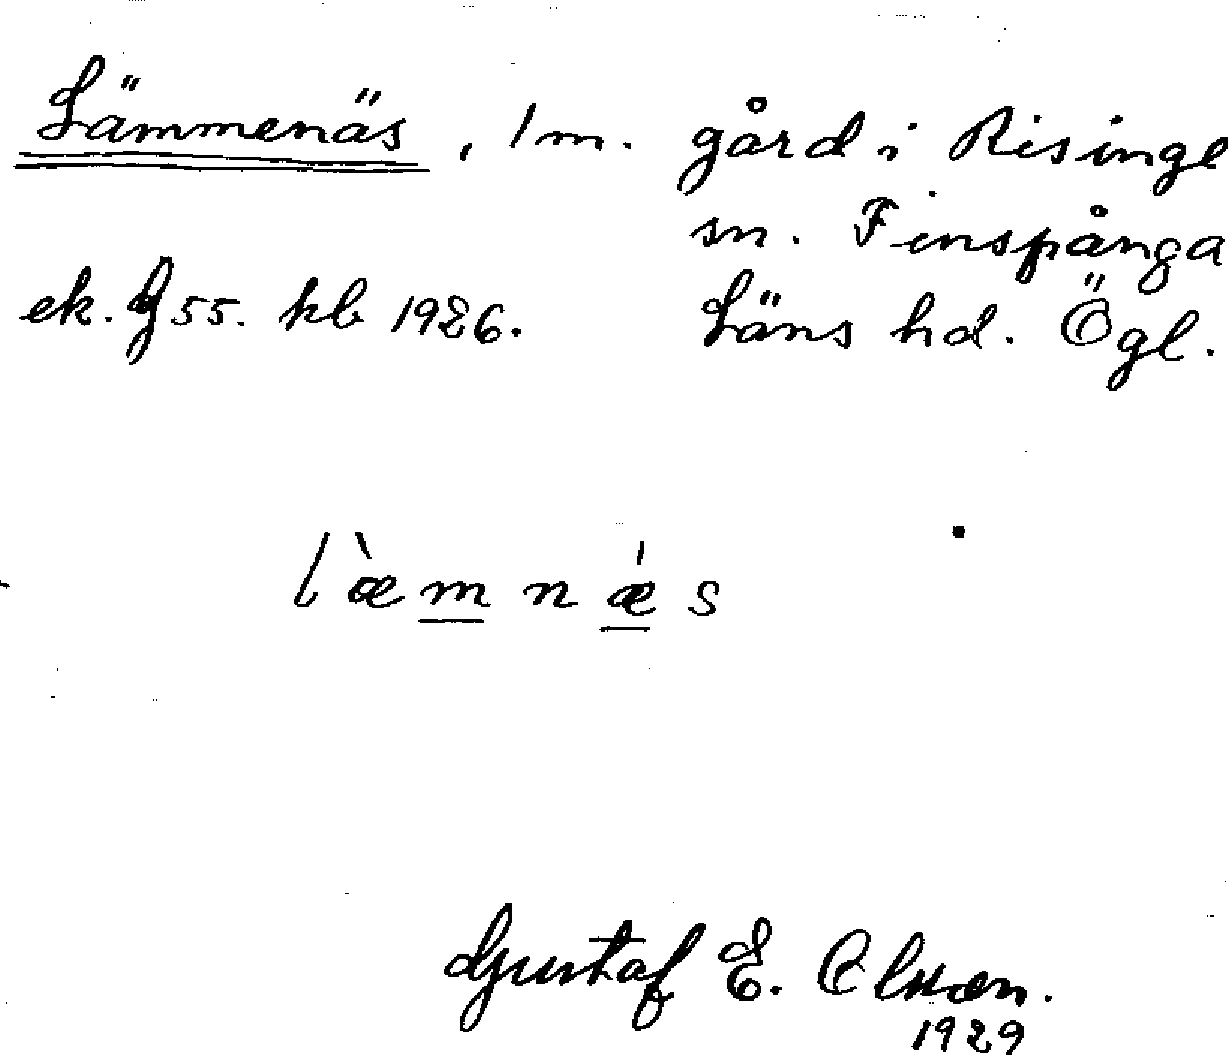 Lämmenäs, 1 m. gård i Risinge
sn. Finspånga
ek. bl 55. kb 1926. Läns hd. Ögl.
l æ̀ m n ǽ s
Gustaf E. Olsson.
1929